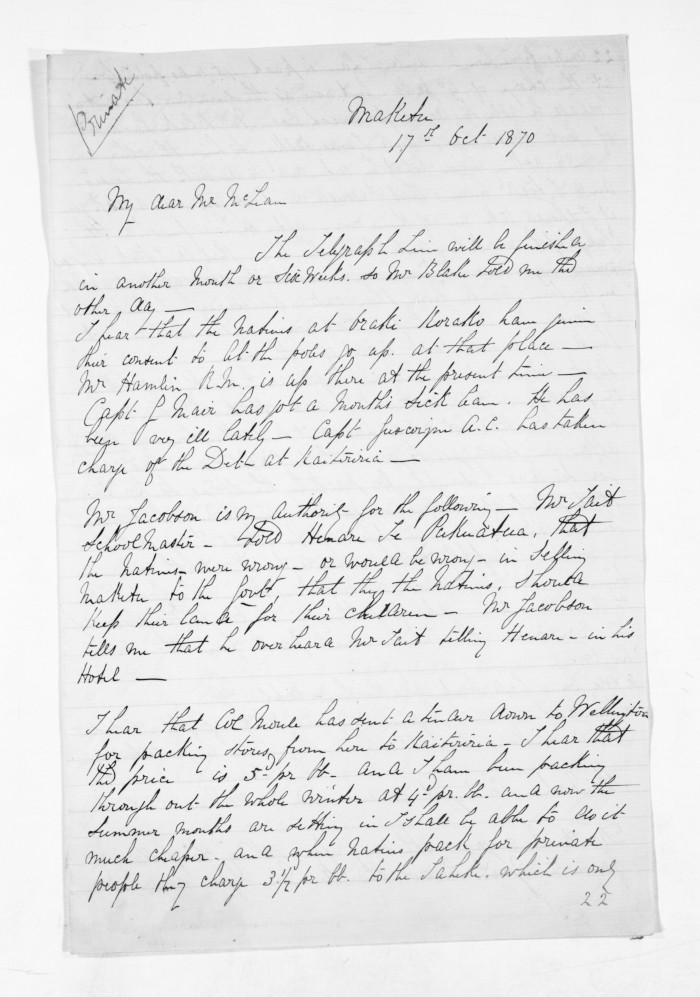 Private
Maketu
17th Oct 1870
My dear Mr McLean
The Telegraph Line will be finished
in another Month or Six Weeks. so Mr Blake told me the
other day —
I hear that the Natives at Oraki Korako have given
their consent to let the poles go up. at that place —
Mr Hamlin R.M. is up there at the present time —
Capt G Mair has got a Months sick leave. He has
been very ill lately — Capt A.C. has taken
charge of the Det. at Kaiteriria —
Mr Jacobson is my authority for the following — Mr Tait
Schoolmaster — told Henare Te Pukuatua, that
the Natives — were wrong — or would be wrong — in selling
Maketu to the Govt, that they the Natives, should
keep their land — for their children — Mr Jacobson
tells me that he over heard Mr Tait telling Henare — in his
Hotel —
I hear that Col Moule has sent a tender down to Wellington
for packing stores, from here to Kaiteriria — I hear that
the price is 5d pr lb. and I have been packing
through out the whole winter at 4d pr. lb. and now the
summer months are setting in I shall be able to do it
much cheaper — and when Natives pack for private
people they charge 3½ pr lb. to the Taheke. which is only
22